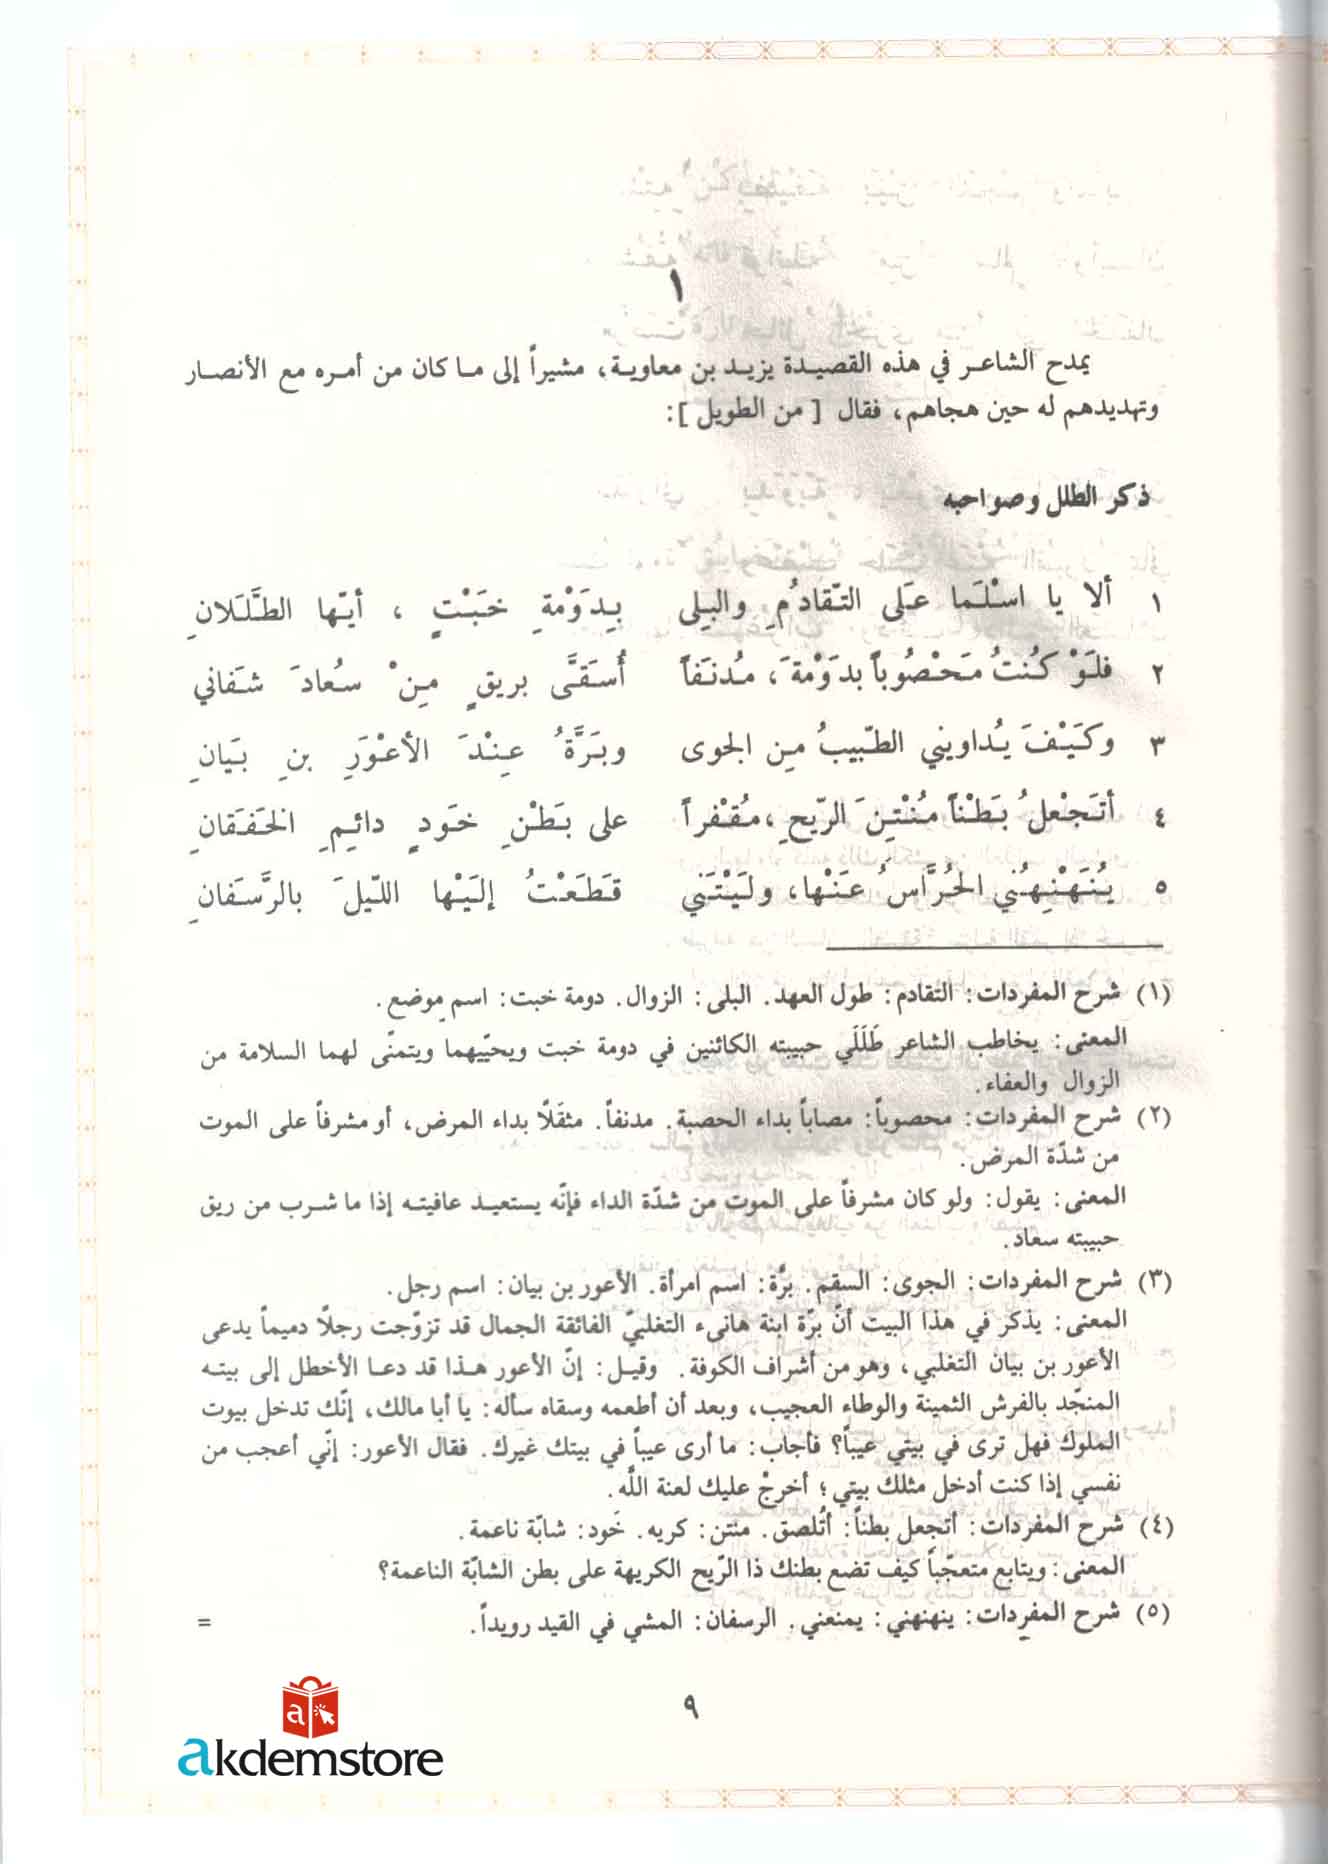 ١
يمدح الشاعر في هذه القصيدة يزيد بن معاوية، مشيراً إلى ما كان من أمره مع الأنصار
وتهديدهم له حين هجاهم، فقال [ من الطويل ]:
ذكر الطلل وصواحبه
١ ألا يا اسْلَما عَلى التّقادُمِ والبِلى بِدَوْمةِ خَبْتٍ ، أيّها الطَّلَلانِ
٢ فلَوْ كُنتُ مَحْصُوباً بدَوْمةَ، مُدنَفاً أُسَقَّى بريقٍ مِنْ سُعادَ شَفاني
٣ وكَيْفَ يُداويني الطّبيبُ مِن الجوى وبَرَّةُ عِنْدَ الأعْوَرِ بنِ بَيَانِ
٤ أتَجْعلُ بَطْناً مُنْتِنَ الرّيحِ ،مُقْفراً على بَطْنِ خَودٍ دائِمِ الخَفَقانِ
٥ يُنَهْنِهُني الحُرَّاسُ عَنْها، ولَيْتَني قَطَعْتُ إليْها اللّيلَ بالرَّسَفانِ
(١) شرح المفردات: التقادم: طول العهد. البلى: الزوال. دومة خبت: اسم موضع.
المعنى: يخاطب الشاعر طَلَلَي حبيبته الكائنين في دومة خبت ويحيّيهما ويتمنّى لهما السلامة من
الزوال والعفاء.
(٢) شرح المفردات: محصوباً: مصاباً بداء الحصبة. مدنفاً. مثقَلاً بداء المرض، أو مشرفاً على الموت
من شدّة المرض.
المعنى: يقول: ولو كان مشرفاً على الموت من شدّة الداء فإنّه يستعيد عافيته إذا ما شرب من ريق
حبيبته سعاد.
(٣) شرح المفردات: الجوى: السقم. برَّة: اسم امرأة. الأعور بن بيان: اسم رجل.
المعنى: يذكر في هذا البيت أنّ برّة ابنة هانىء التغلبيّ الفائقة الجمال قد تزوّجت رجلاً دميماً يدعى
الأعور بن بيان التغلبي، وهو من أشراف الكوفة. وقيل: إنّ الأعور هذا قد دعا الأخطل إلى بيته
المنجّد بالفرش الثمينة والوطاء العجيب، وبعد أن أطعمه وسقاه سأله: يا أبا مالك، إنّك تدخل بيوت
الملوك فهل ترى في بيتي عيباً؟ فأجاب: ما أرى عيباً في بيتك غيرك. فقال الأعور: إنّي أعجب من
نفسي إذا كنت أدخل مثلك بيتي؛ أخرجْ عليك لعنة اللّه.
(٤) شرح المفردات: أتجعل بطناً: أتُلصق. منتن: كريه. خَود: شابّة ناعمة.
المعنى: ويتابع متعجّباً كيف تضع بطنك ذا الرّيح الكريهة على بطن الشابّة الناعمة؟
(٥) شرح المفردات: ينهنهني: يمنعني. الرسفان: المشي في القيد رويداً. =
٩
a
akdemstore